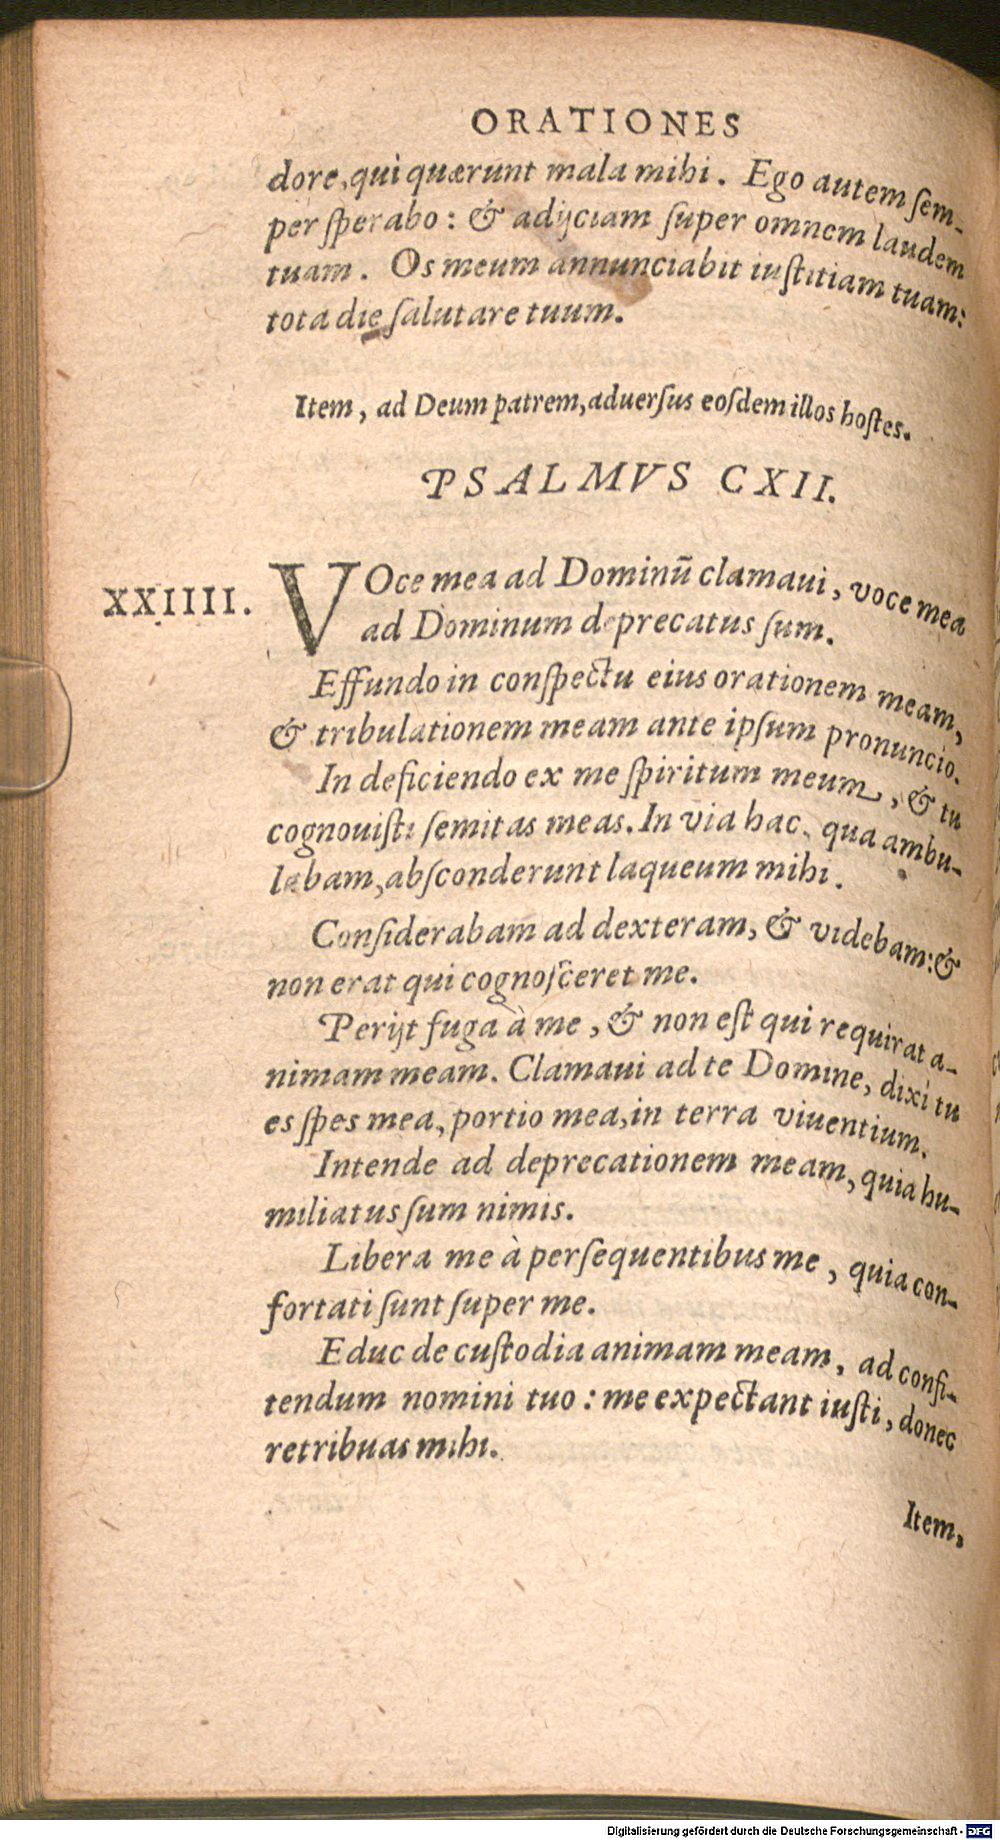 ORATIONES
dore, qui quærunt mala mihi. Ego autem ſem-
per ſperabo: & adijciam ſuper omnem laudem
tuam. Os meum annunciabit iuſtitiam tuam:
tota die ſalutare tuum.
Item, ad Deum patrem, aduerſus eoſdem illos hoſtes.
PSALMVS CXII.
XXIIII.
VOce mea ad Dominū clamaui, voce mea
ad Dominum deprecatus ſum.
Effundo in conſpectu eius orationem meam,
& tribulationem meam ante ipſum pronuncio.
In deficiendo ex me ſpiritum meum, & tu
cognouiſti ſemitas meas. In via hac, qua ambu-
labam, abſconderunt laqueum mihi.
Conſiderabam ad dexteram, & videbam: &
non erat qui cognoſceret me.
Perijt fuga à me, & non eſt qui requirat a-
nimam meam. Clamaui ad te Domine, dixi tu
es ſpes mea, portio mea, in terra viuentium.
Intende ad deprecationem meam, quia hu-
miliatus ſum nimis.
Libera me à perſequentibus me, quia con-
fortati ſunt ſuper me.
Educ de cuſtodia animam meam, ad confi-
tendum nomini tuo: me expectant iuſti, donec
retribuas mihi.
Item,
Digitalisierung gefördert durch die Deutsche Forschungsgemeinschaft - DFG